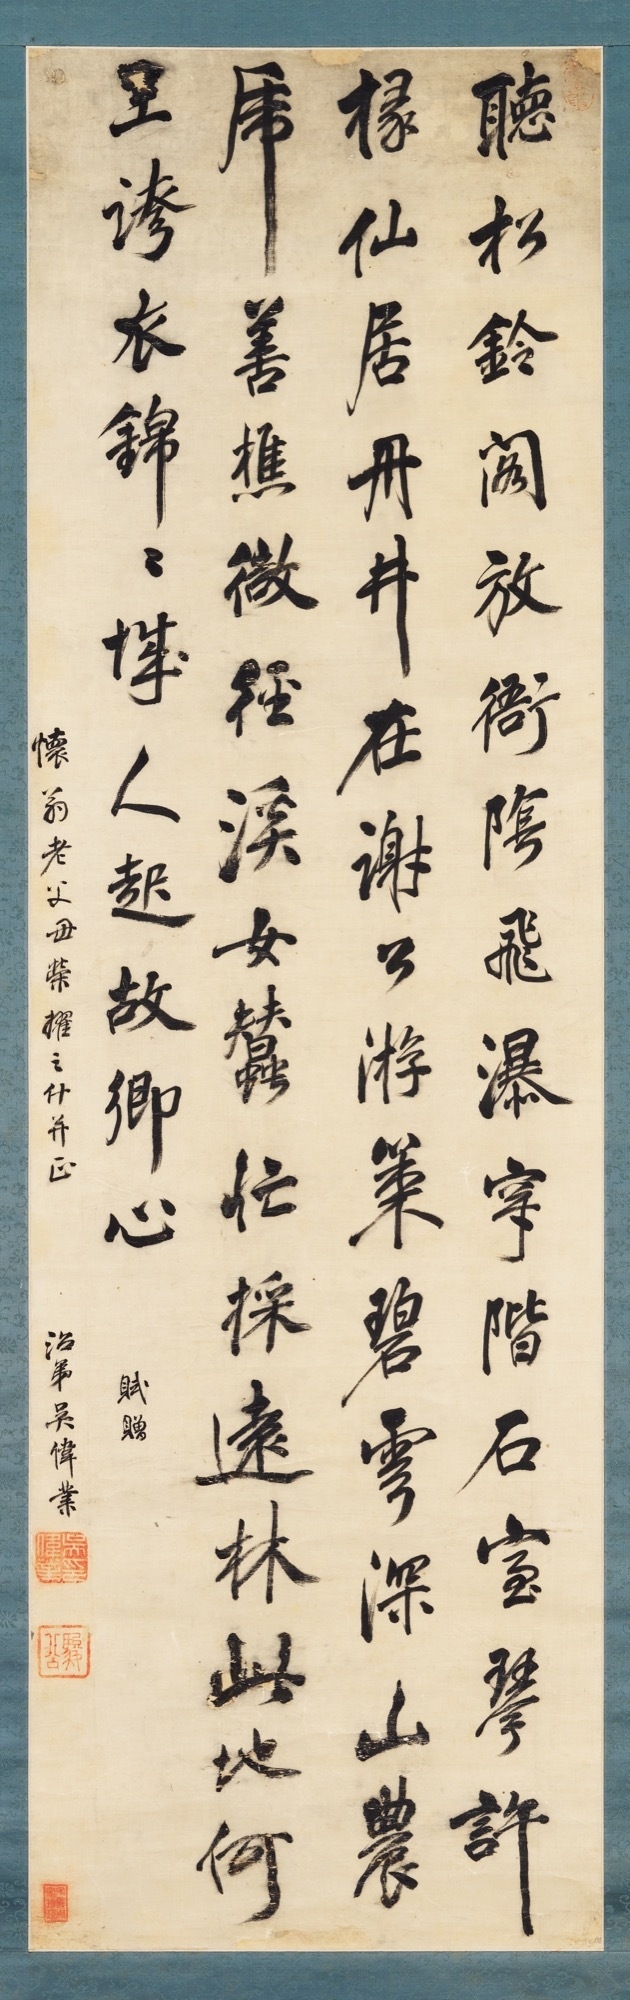 聽松鈴閣放衙陰飛瀑穿階石室琴許
椽仙居丹井在謝公游策碧雲深山農
虎善樵微徑溪女蠶忙採遠林此地何
誇衣錦〻城人起故鄉心 賦贈
懷翁老父母榮擢之什并正
治弟吳偉業